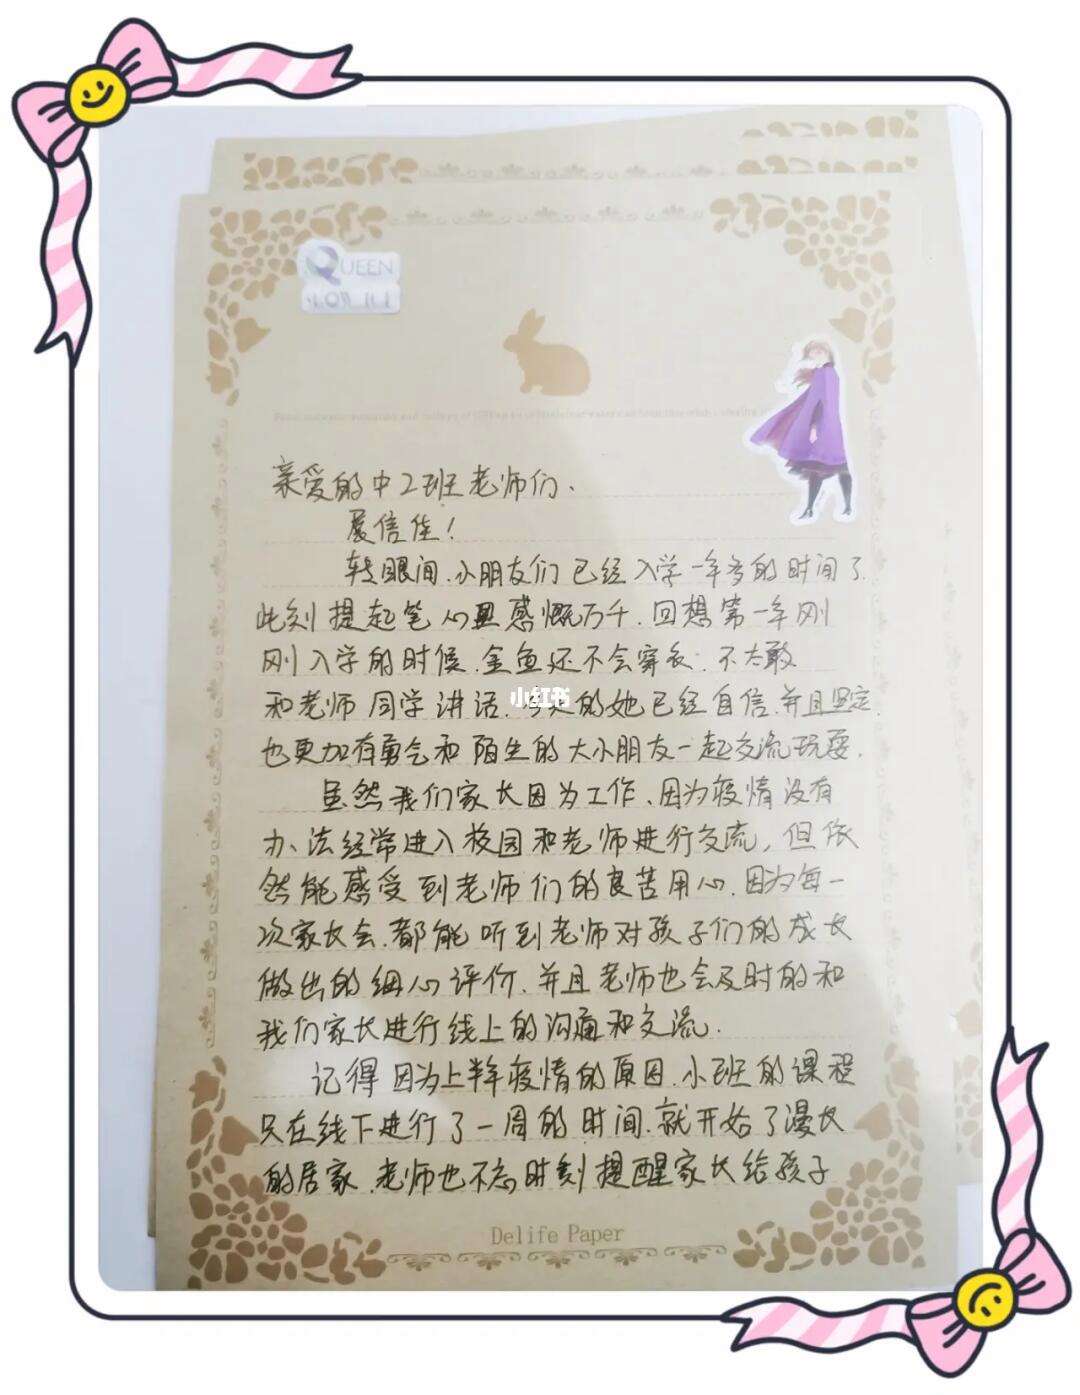 QUEEN
亲爱的中2班老师们、
展信佳！
转眼间.小朋友们已经入学一年多的时间了.
此刻提起笔心里感慨万千.回想第一年刚
刚入学的时候.金鱼还不会穿衣.不太敢
和老师同学讲话.今天的她已经自信.并且坚定.
小红书
也更加有勇气和陌生的大小朋友一起交流玩耍.
虽然我们家长因为工作、因为疫情没有
办法经常进入校园和老师进行交流，但依
然能感受到老师们的良苦用心.因为每一
次家长会.都能听到老师对孩子们的成长
做出的细心评价.并且老师也会及时的和
我们家长进行线上的沟通和交流.
记得因为上半年疫情的原因.小班的课程
只在线下进行了一周的时间.就开始了漫长
的居家.老师也不忘时刻提醒家长给孩子
Delife Paper